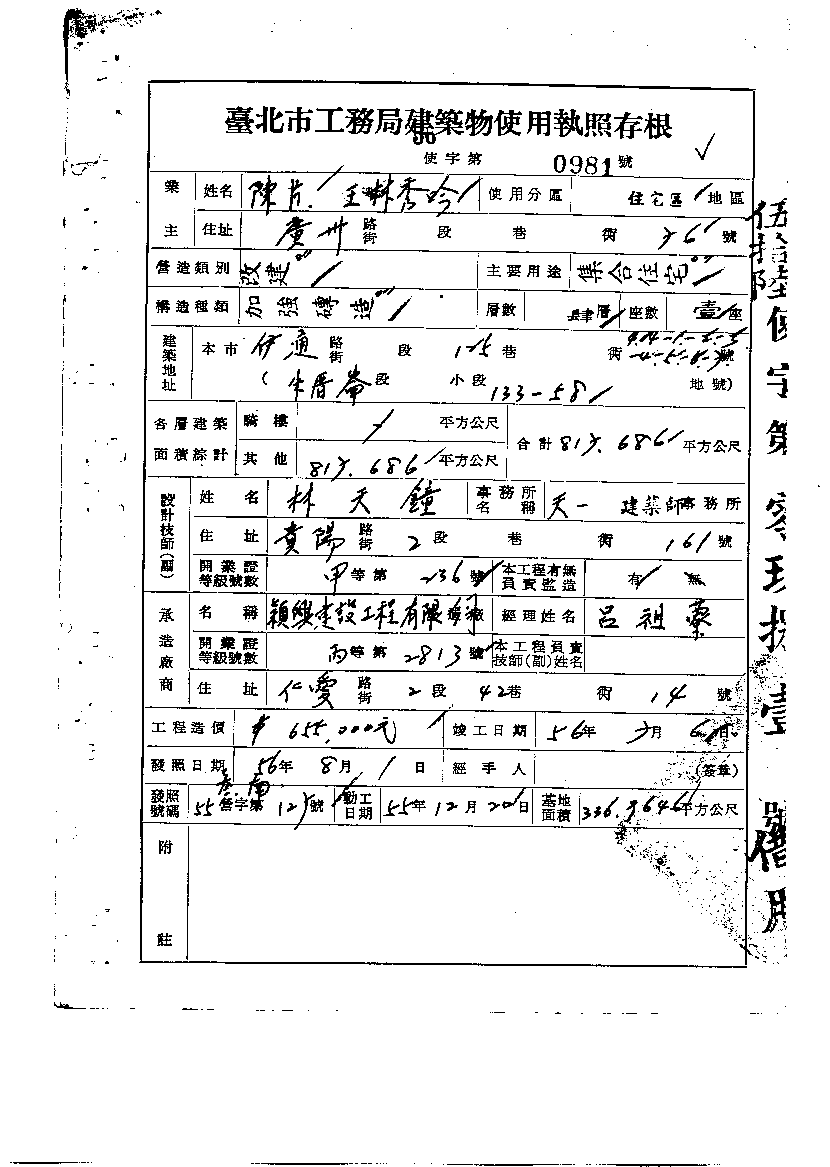 臺北市工務局建築物使用執照存根
56
使字第 0981 號
業主 姓名 陳片 王林秀吟 使用分區 住宅區 地區
住址 廣州 路街 段 巷 衖 號
營造類別 改建 主要用途 集合住宅
構造種類 加強磚造 層數 肆層 座數 壹座
建築地址 本市 伊通 路街 段 125巷 衖 號
(牛厝崙段 小段 133-58 地號)
各層建築面積綜計 騎樓 平方公尺 合計 .686 平方公尺
其他 .686 平方公尺
設計技師(副) 姓名 林天鐘 事務所名稱 天一 建築師事務所
住址 貴陽 路街 2段 巷 衖 161號
開業證等級號數 甲等第 236號 本工程有無負責監造 有 無
承造廠商 名稱 穎興建設工程有限 經理姓名 呂祖
開業證等級號數 丙等第 2813號 本工程負責技師(副)姓名
住址 仁愛 路街 2段 42巷 衖 14號
工程造價 $655,000元 竣工日期 56年 月 6日
發照日期 56年 8月 1日 經手人 (簽章)
發照號碼 55 營字第 號 動工日期 55年12月20日 基地面積 平方公尺
附註
伍拾陸使字第零玖捌壹號